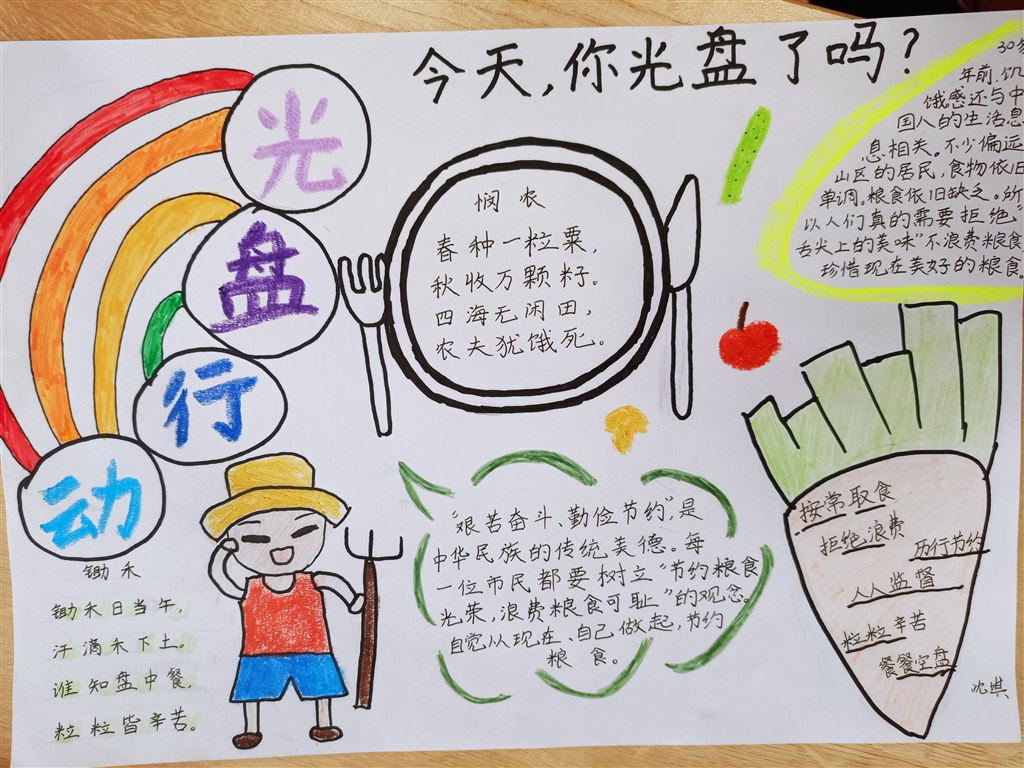 今天,你光盘了吗?
光
盘
行
动
悯农
春种一粒粟,
秋收万颗籽。
四海无闲田,
农夫犹饿死。
30多
年前.饥
饿感还与中
国人的生活息
息相关。不少偏远
山区的居民,食物依旧
单调。粮食依旧缺乏。所
以人们真的需要拒绝"
舌尖上的美味"不浪费粮食
珍惜现在美好的粮食
锄禾
锄禾日当午,
汗滴禾下土。
谁知盘中餐,
粒粒皆辛苦。
"艰苦奋斗、勤俭节约",是
中华民族的传统美德。每
一位市民都要树立"节约粮食
光荣,浪费粮食可耻"的观念。
自觉从现在、自己做起,节约
粮食。
按常取食
拒绝浪费
历行节约
人人监督
粒粒辛苦
餐餐空盘
沈琪